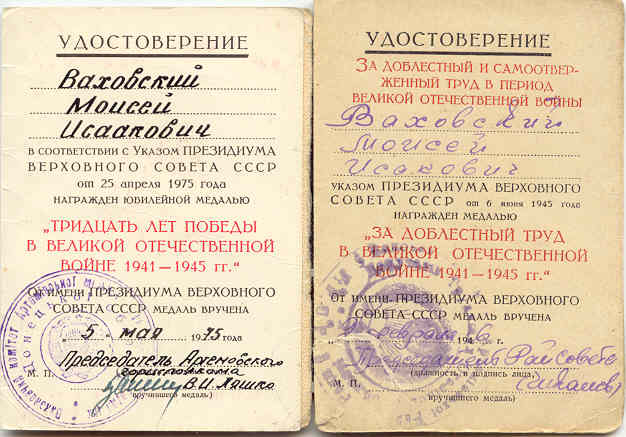 УДОСТОВЕРЕНИЕ
Ваховский
Моисей
Исаакович
В СООТВЕТСТВИИ С УКАЗОМ ПРЕЗИДИУМА
ВЕРХОВНОГО СОВЕТА СССР
от 25 апреля 1975 года
НАГРАЖДЕН ЮБИЛЕЙНОЙ МЕДАЛЬЮ
„ТРИДЦАТЬ ЛЕТ ПОБЕДЫ
В ВЕЛИКОЙ ОТЕЧЕСТВЕННОЙ
ВОЙНЕ 1941—1945 гг.“
ОТ ИМЕНИ ПРЕЗИДИУМА ВЕРХОВНОГО
СОВЕТА СССР МЕДАЛЬ ВРУЧЕНА
5 мая 1975 года
Председатель Артемовского
горисполкома
М. П. В.И. Ляшко
вручившего медаль)
УДОСТОВЕРЕНИЕ
ЗА ДОБЛЕСТНЫЙ И САМООТВЕР-
ЖЕННЫЙ ТРУД В ПЕРИОД
ВЕЛИКОЙ ОТЕЧЕСТВЕННОЙ ВОЙНЫ
Ваховский
Моисей
Исакович
УКАЗОМ ПРЕЗИДИУМА ВЕРХОВНОГО
СОВЕТА СССР от 6 июня 1945 года
НАГРАЖДЕН МЕДАЛЬЮ
„ЗА ДОБЛЕСТНЫЙ ТРУД
В ВЕЛИКОЙ ОТЕЧЕСТВЕННОЙ
ВОЙНЕ 1941—1945 гг.“
ОТ ИМЕНИ ПРЕЗИДИУМА ВЕРХОВНОГО
СОВЕТА СССР МЕДАЛЬ ВРУЧЕНА
февраля 194
Председатель Райсовета
(должность и подпись лица,
М. П.
вручившего медаль)